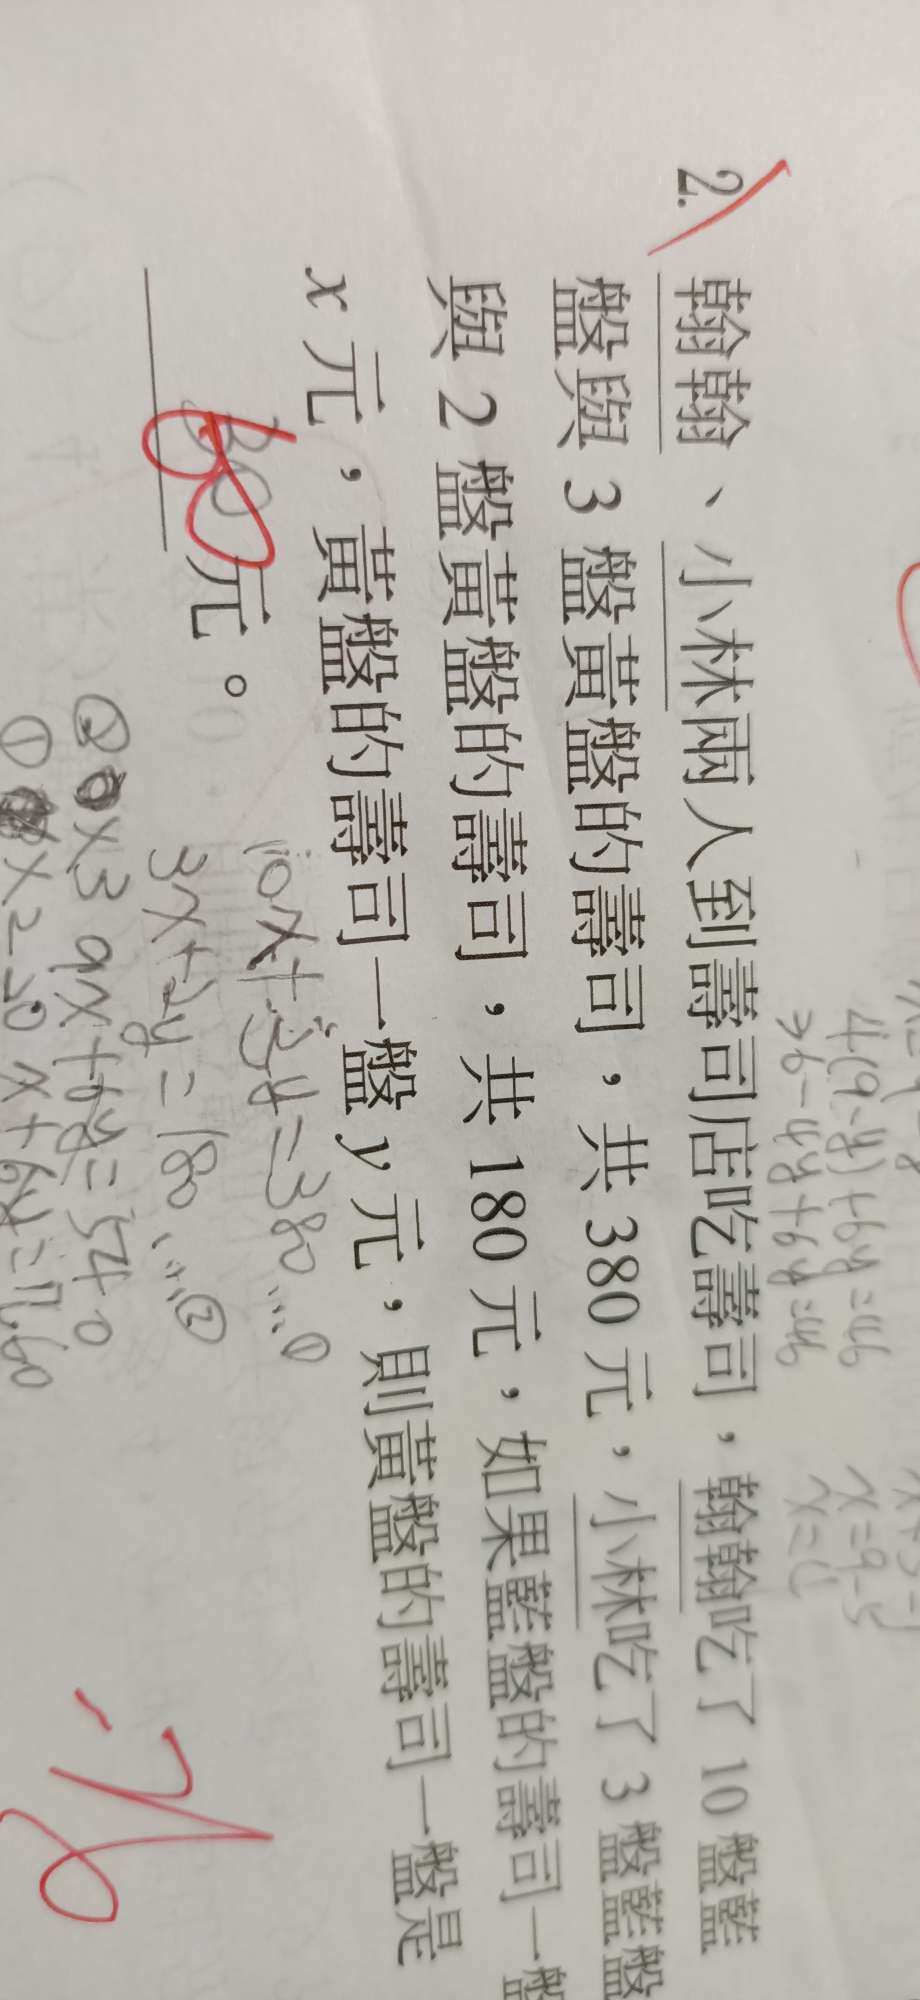 4(9-y)+6y=46
36-4y+6y=46
x=9-5
2. 翰翰、小林兩人到壽司店吃壽司，翰翰吃了 10 盤藍
盤與 3 盤黃盤的壽司，共 380 元，小林吃了 3 盤藍盤
與 2 盤黃盤的壽司，共 180 元，如果藍盤的壽司一盤
x 元，黃盤的壽司一盤 y 元，則黃盤的壽司一盤是
60元。
10x+3y=380…①
3x+2y=180…②
②×3 9x+6y=540
①×2 20x+6y=760
-76